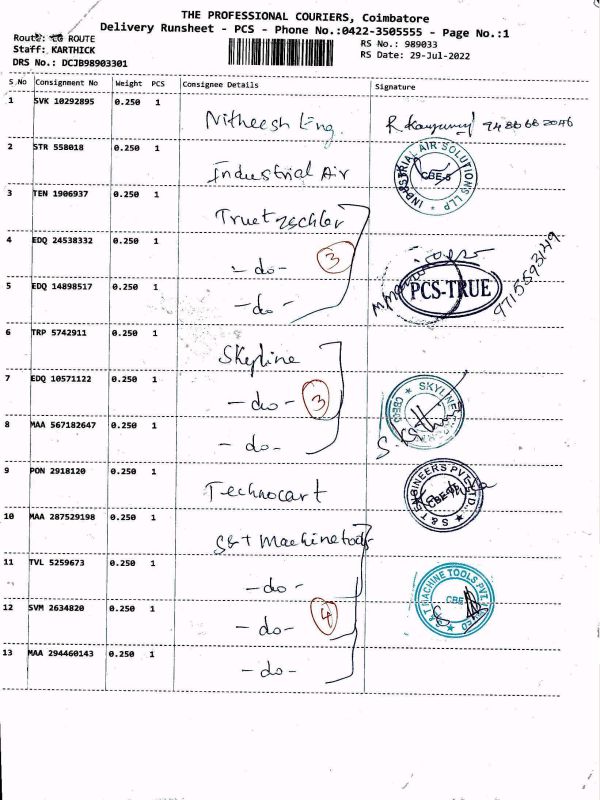 THE PROFESSIONAL COURIERS, Coimbatore
Delivery Runsheet - PCS - Phone No.:0422-3505555 - Page No.:1
Route: CG ROUTE
RS No.: 989033
Staff: KARTHICK
RS Date: 29-Jul-2022
DRS No.: DCJB98903301
S.No Consignment No Weight PCS Consignee Details Signature
1 SVK 10292895 0.250 1 Nitheesh Eng. R
2 STR 558018 0.250 1 Industrial Air INDUSTRIAL AIR SOLUTIONS LLP * CBE-6
3 TEN 1906937 0.250 1 Truetzschler
4 EDQ 24538332 0.250 1 - do - 3
5 EDQ 14898517 0.250 1 - do - PCS-TRUE 9715593149
6 TRP 5742911 0.250 1 Skyline
7 EDQ 10571122 0.250 1 - do - 3 * SKYLINE
8 MAA 567182647 0.250 1 - do -
9 PON 2918120 0.250 1 Technocart S & T ENGINEERS PVT LTD.,
10 MAA 287529198 0.250 1 S&T Machine tools
11 TVL 5259673 0.250 1 - do - S & T MACHINE TOOLS PVT. CBE
12 SVM 2634820 0.250 1 - do - 4
13 MAA 294460143 0.250 1 - do -